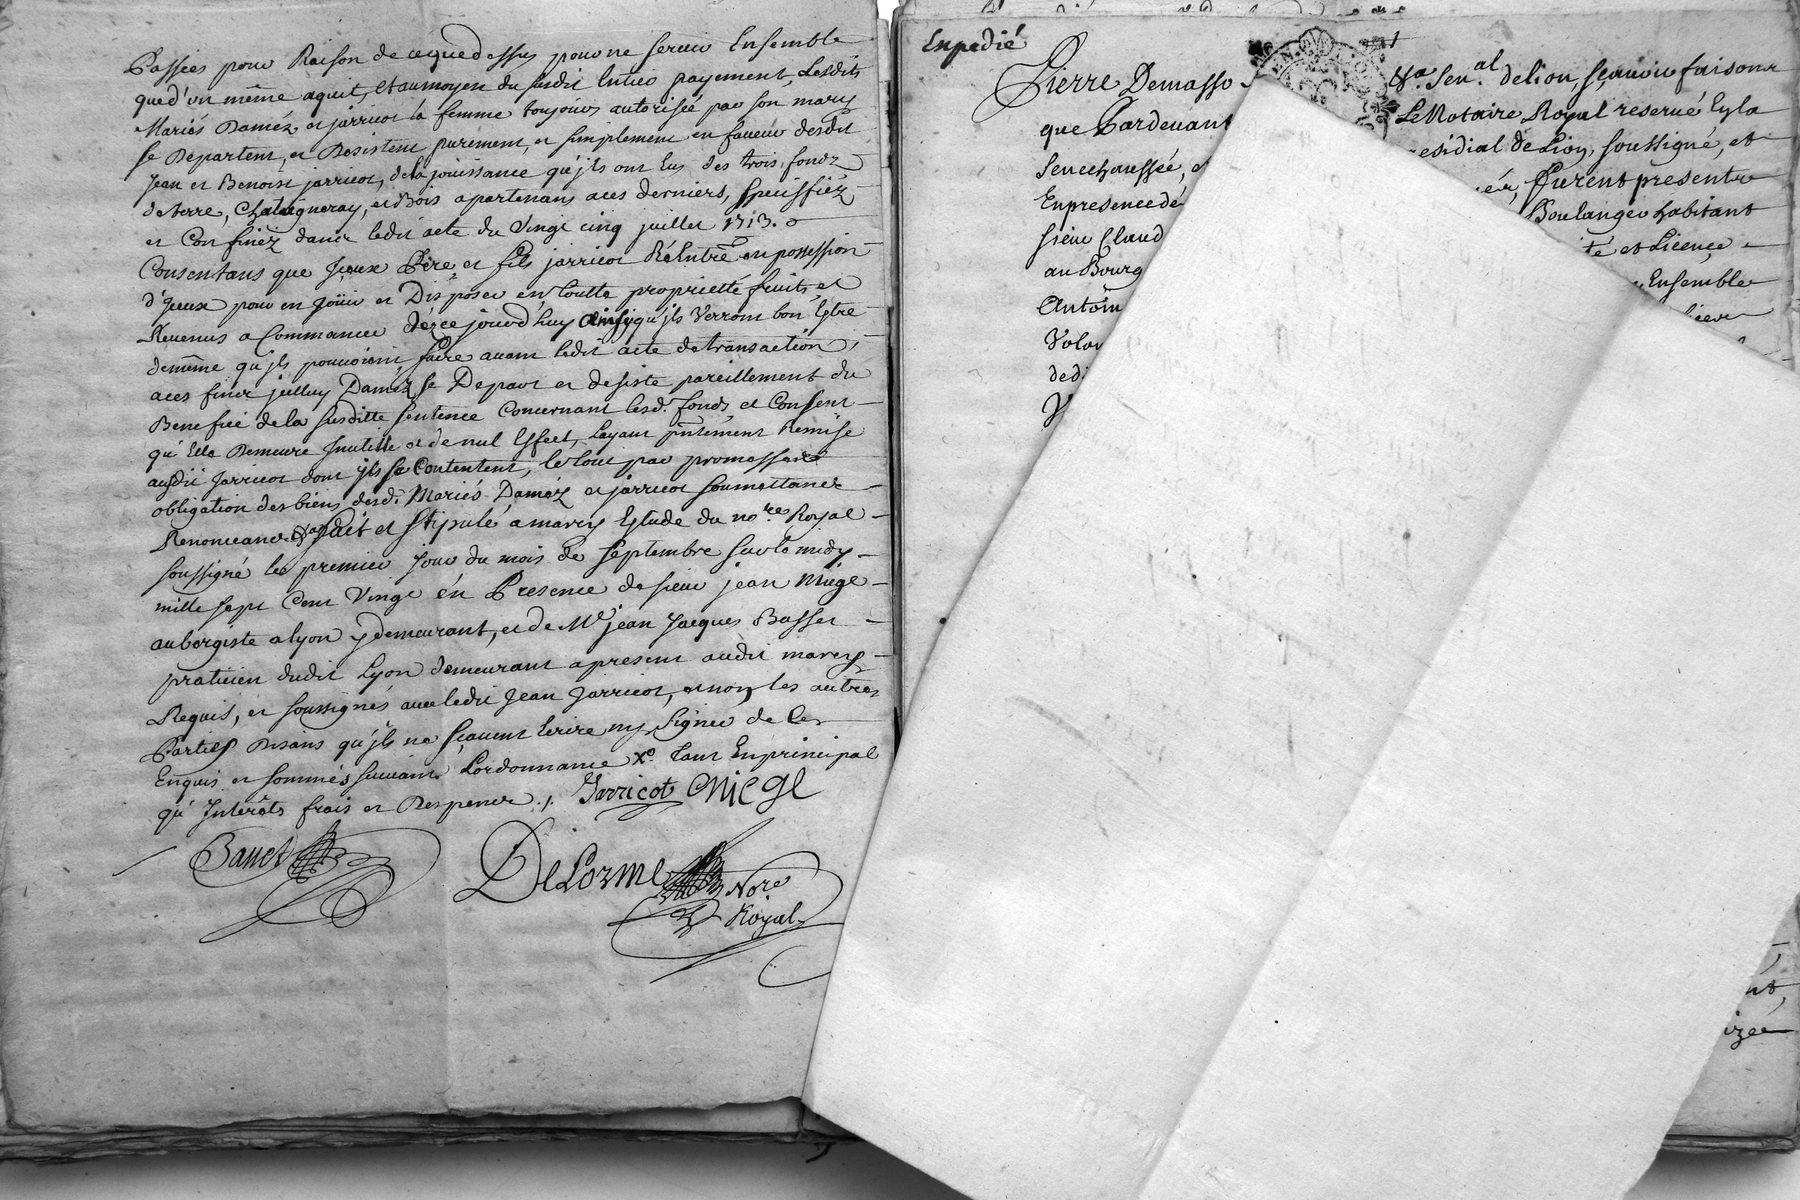 Passées pour Raison de ceque dessus pour ne servir Ensemble
que d'un même aquit, et au moyen du susdit Entier payement, Lesdits
Mariés Daméz et jarricot la femme toujours autorisée par son mary
se Departent, et Desistent purement, et simplement en faveur desdit
Jean et Benoist jarricot, de la jouissance qu'jls ont Eus des trois fondz
de terre, Chataigneray, et Bois apartenans a ces derniers, speciffiéz
et Confinéz dans ledit acte du Vingt cinq juillet 1713.
Consentans que Jceux Père et fils jarricot Réentre en possession
d'Jceux pour en joüir et Disposer en toutte proprieté fruits et
Revenus a Commancer déz ce jourd'huy ainsy qu'jls Verront bon Estre
demême qu'jls pouvoient faire avant ledit acte de transaction,
a ces fins jcelluy Daméz se Depart et desiste pareillement du
Benefice de la susditte sentence Concernant lesd. fonds et Consent
qu'Elle Demeure Jnutille et de nul Effect, Layant pntement Remise
audit Jarricot dont jls se Contentent, le tout par promesses
obligation des biens desd. Mariés Daméz et jarricot soumettance
Renonceance &a fait et stipulé a marcy Estude du nore Royal
soussigné le premier jour du mois de septembre sur le midy
mille sept Cent Vingt én Presence de sieur jean Miége
aubergiste a lyon y demeurant, et de Me jean Jacques Basset
praticien dudit Lyon demeurant apresent audit marcy
Requis, et soussignés avec ledit Jean Jarricot, et non les autres
Parties Disans qu'jls ne sçavent Ecrire ny signer de Ce
Enquis et sommés suivant Lordonnance x° Tant En principal
qu'Jnterêts frais et Despences ./. Jarricot Miege
Basset
DeLorme Nore
Royal
Expedié
Pierre Demasso
que Pardevant
Seneschaussée,
En presence dé
sieur Claud
au Bourg
Antoin
dedi
&a. Sen.al delion, sçavoir faisons
Le Notaire Royal reservé En la
residial de Lion, soussigné, et
Furent presents
Boulanger habitant
té et Licence,
Ensemble